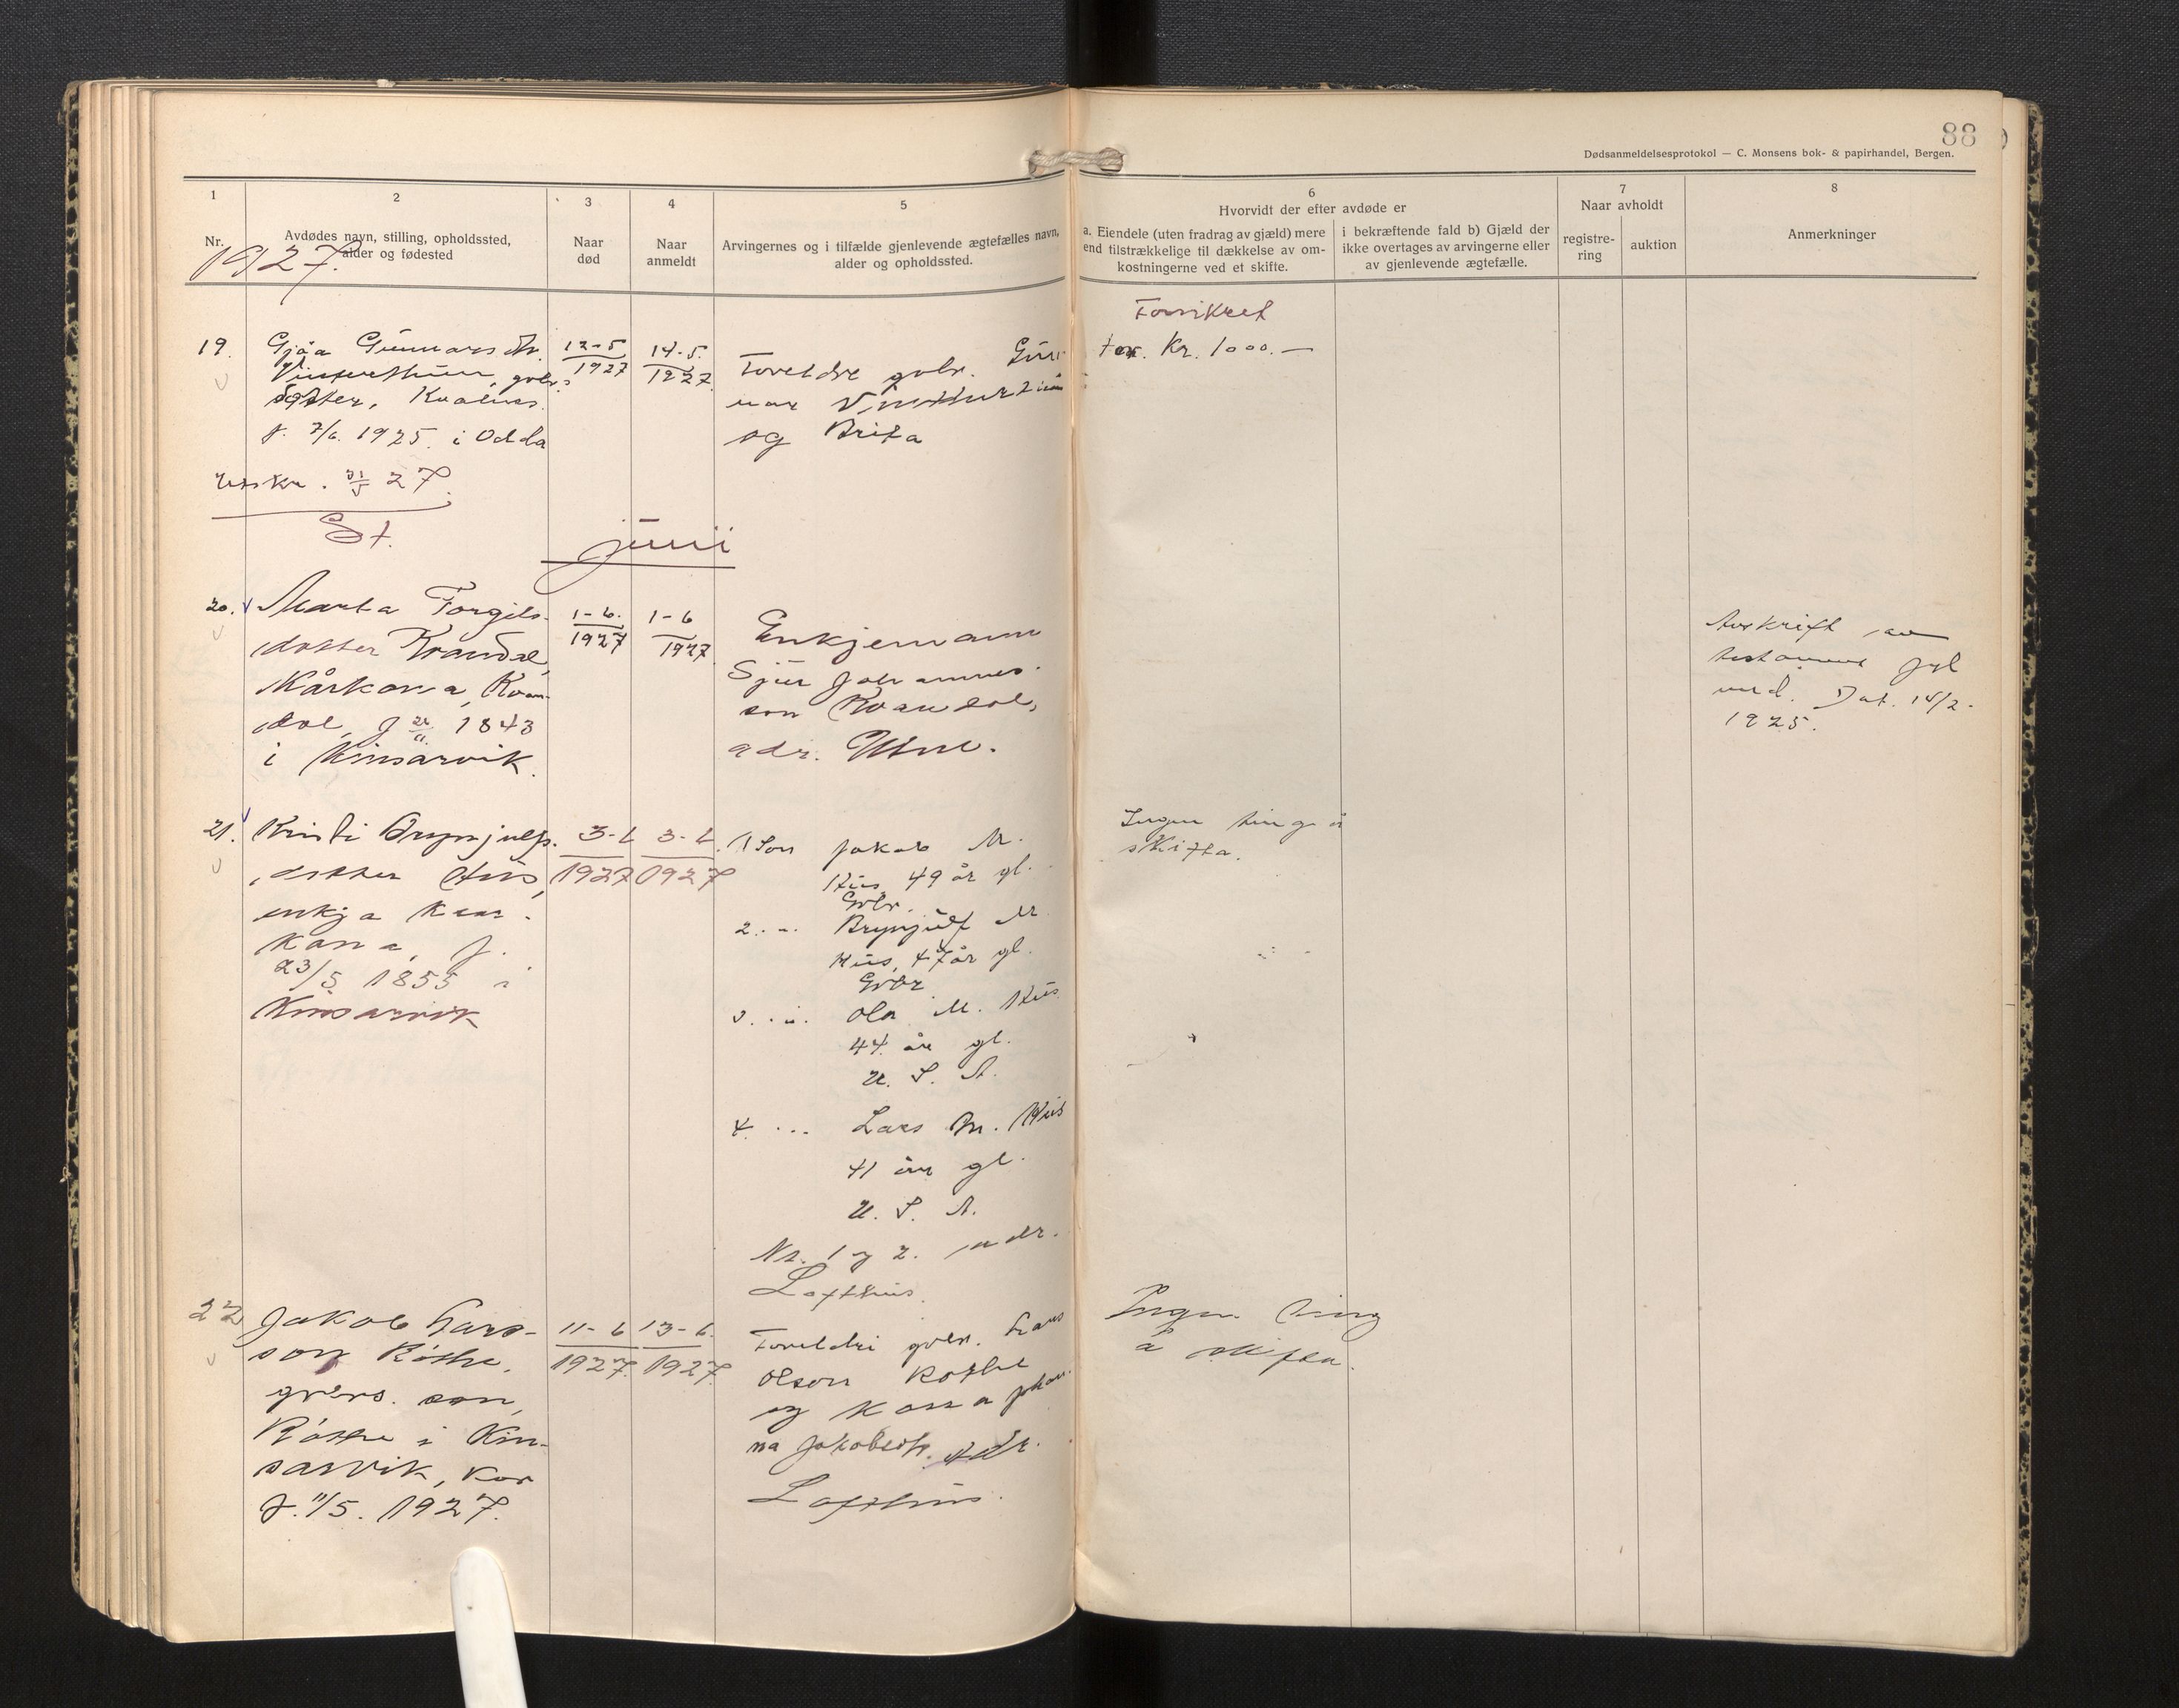 88
Dødsanmeldelsesprotokol — C. Monsens bok- & papirhandel, Bergen.
1
2
3
4
5
6
7
8
Nr.
Avdødes navn, stilling, opholdssted,
alder og fødested
Naar
død
Naar
anmeldt
Arvingernes og i tilfælde gjenlevende ægtefælles navn,
alder og opholdssted.
Hvorvidt der efter avdøde er
a. Eiendele (uten fradrag av gjæld) mere
end tilstrækkelige til dækkelse av om-
kostningerne ved et skifte.
i bekræftende fald b) Gjæld der
ikke overtages av arvingerne eller
av gjenlevende ægtefælle.
Naar avholdt
registre-
ring
auktion
Anmerkninger
1927.
19.
Gjøa Gunnarsdtr.
Vinterthun, gbr.
dotter, Kvalnes
f. 7/6. 1925. i Odda
12-5
1927
14-5.
1927.
Foreldre gbr. Gun
nar Vinterthun
og Brita
Forsikret
for Kr. 1000.—
utskr. 31/5 27.
St.
juni
20.
Marta Torgils-
dotter Kvandal,
Kårkona, Kvan-
dal, f 1843
i Kinsarvik.
1-6.
1927
1-6
1927.
Enkjemann
Sjur Johannes-
son Kvandal,
adr. Utne.
Avskrift av
testament fyl
med. Dat. 15/2-
1925.
21.
Kristi Brynjulfs-
dotter Hus,
enkja Kaar-
kona, f.
23/5 1855 i
Kinsarvik
3-6
1927
3-6.
1927
1 Son Jakob M.
Hus, 49 år gl.
Gbr.
2. -"- Brynjulf M
Hus, 47 år gl.
Gbr
3. -"- Ola M. Hus
44 år gl.
U. S. A.
4. -"- Lars M. Hus
41 år gl.
U. S. A.
Nr. 1 og 2. adr.
Lofthus.
Ingen ting å
skifta.
22
Jakob Lars-
son Røthe,
gbrs. son,
Røthe i Kin-
sarvik, Kor
f. 11/5. 1927.
11-6
1927.
13-6.
1927.
Foreldri gbr. Lars
Olson Røthe
og Kona Johan-
na Jakobsdtr. Adr.
Lofthus.
Ingen ting
å skifta.